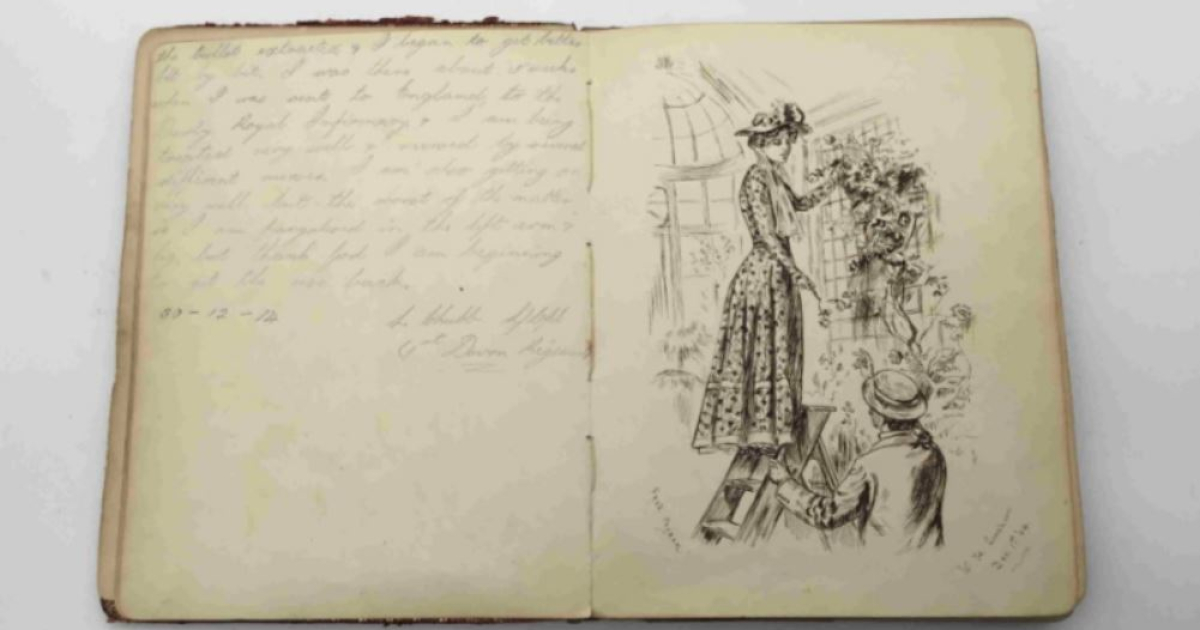 the bullet extracted & I began to get better
bit by bit. I was there about weeks
when I was sent to England, to the
Royal Infirmary, & I am being
treated very well & nursed by several
different nurses. I am also getting on
very well but the worst of the matter
is I am paralysed in the left arm &
leg, but thank God I am beginning
to get the use back.
30-12-14
Devon